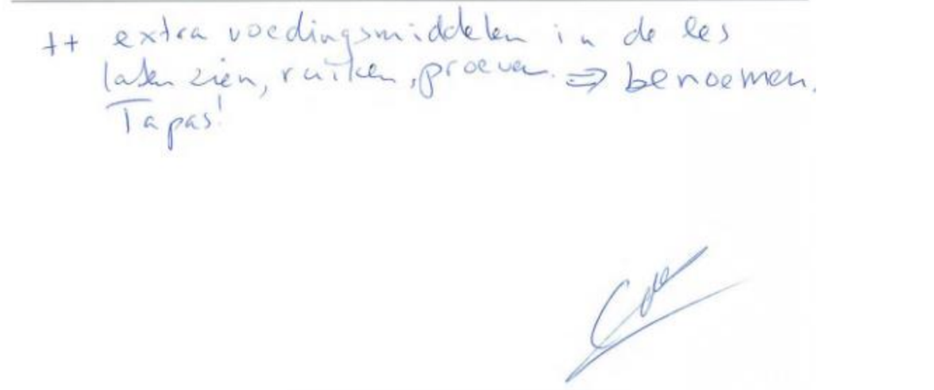 ++ extra voedingsmiddelen in de les
laten zien, ruiken, proeven. ⇒ benoemen.
Tapas!